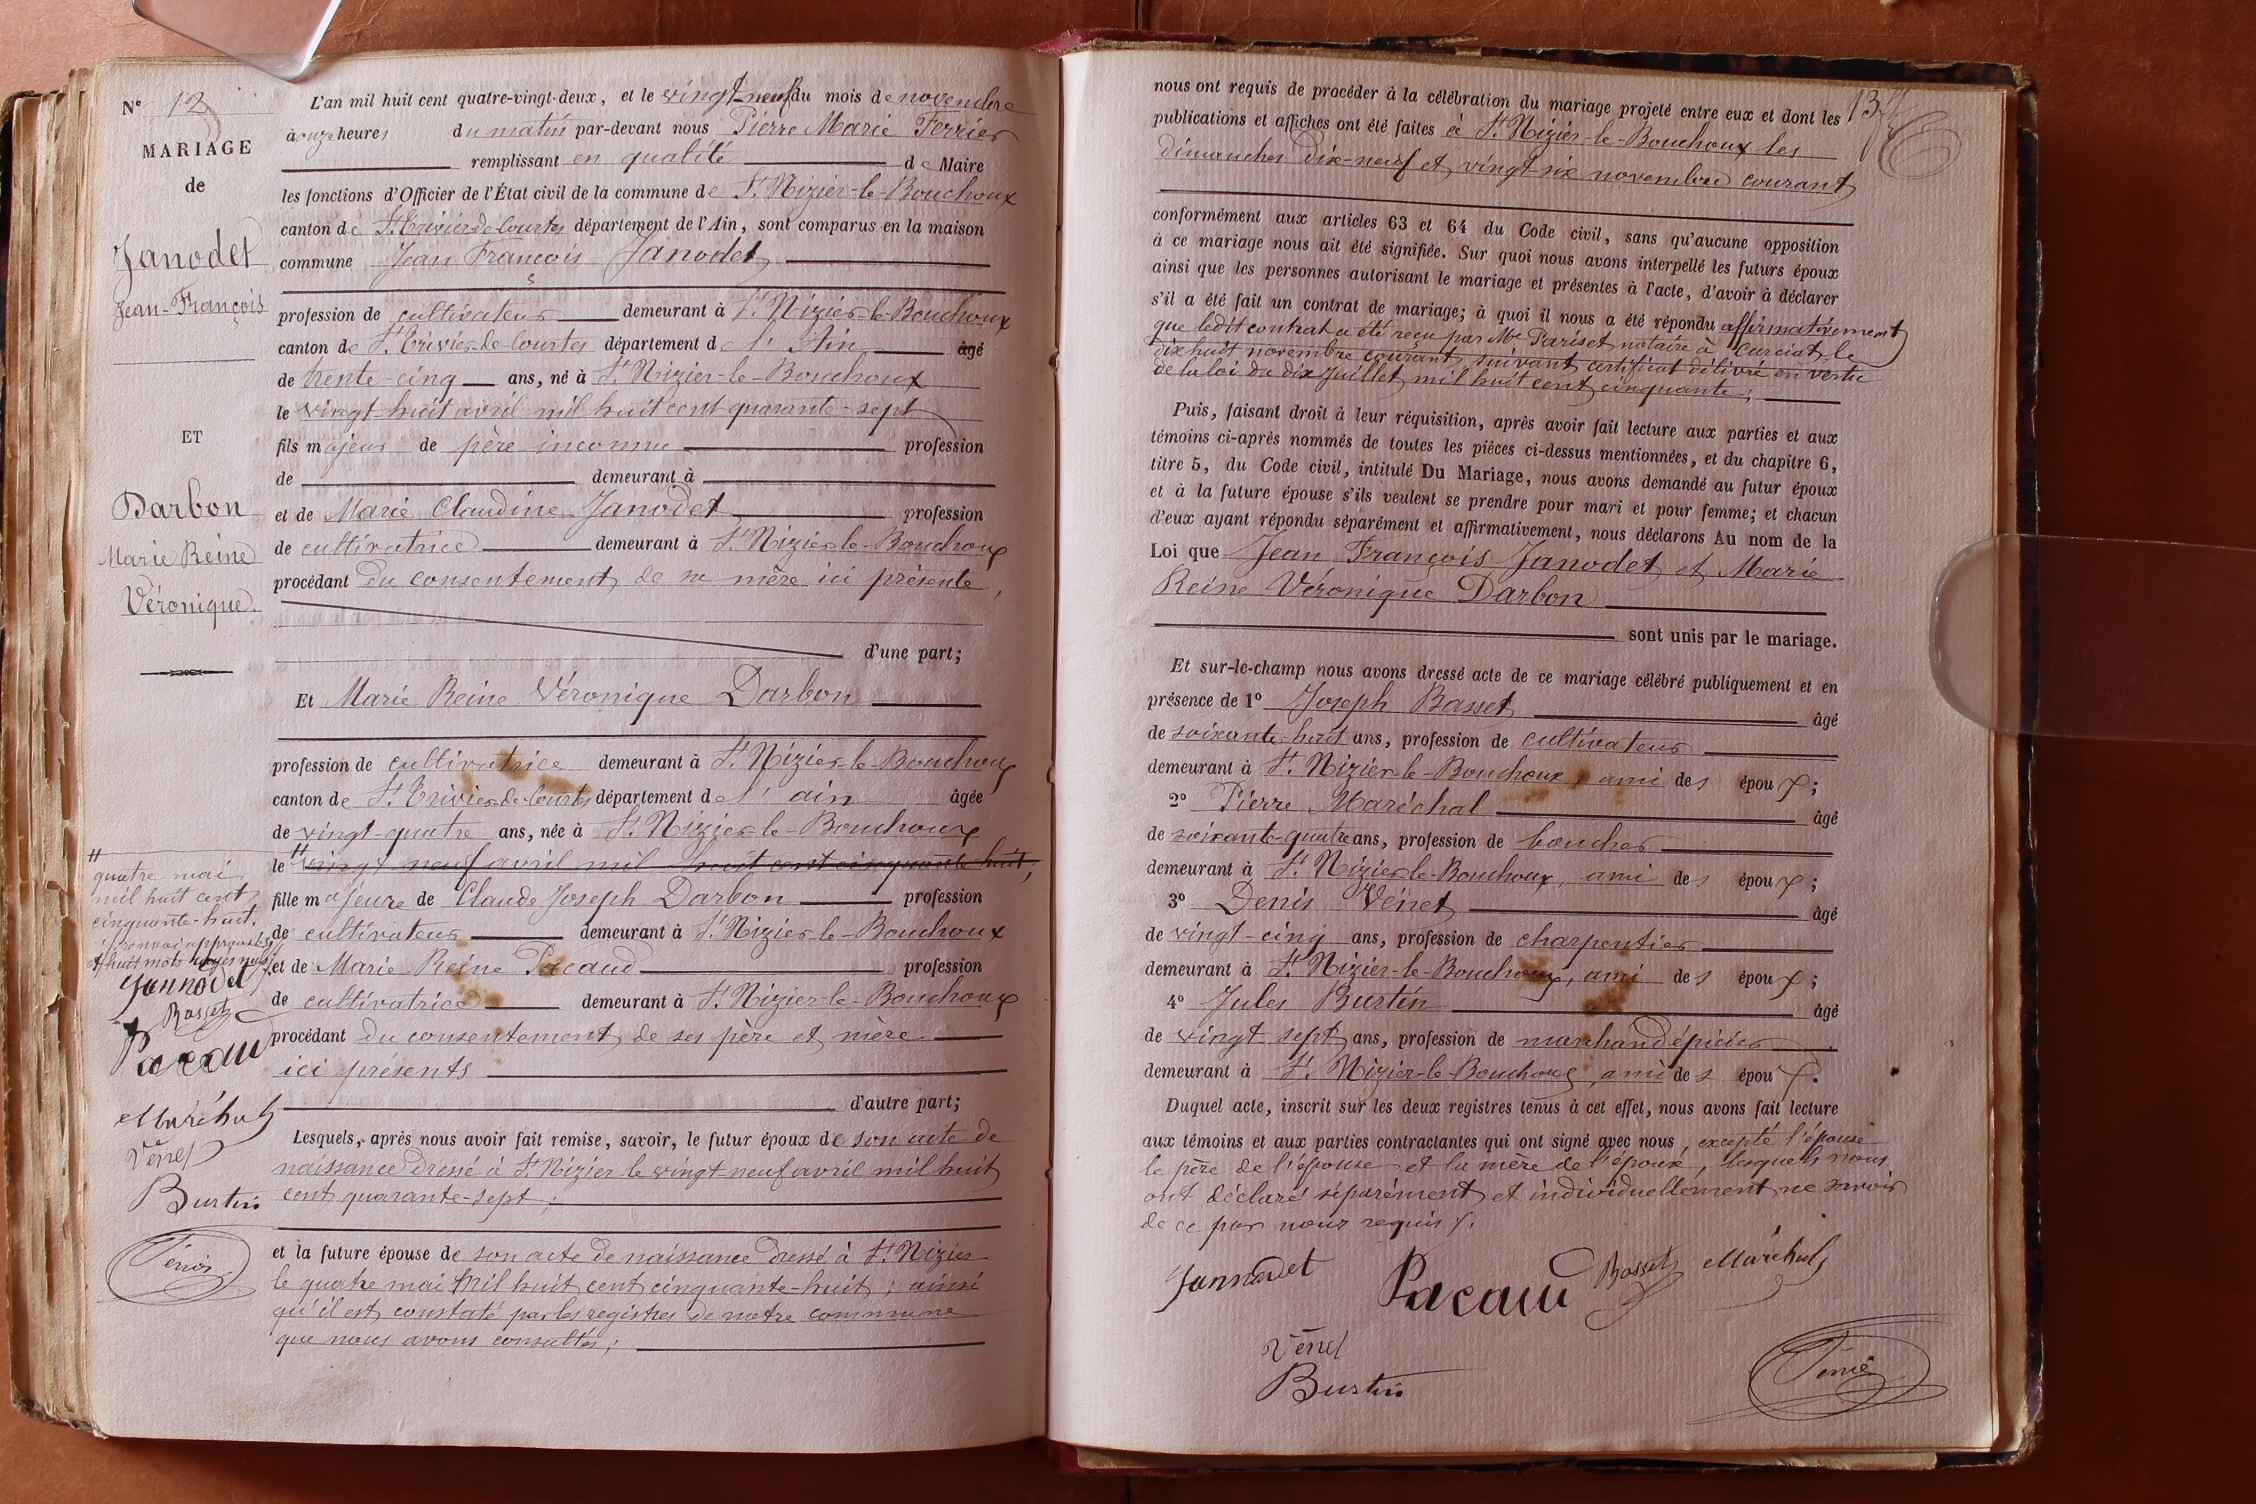 N° 12
MARIAGE
de
Janodet
Jean-François
ET
Darbon
Marie Reine
Véronique.
L'an mil huit cent quatre-vingt-deux, et le vingt-neuf du mois de novembre
à onze heures du matin par-devant nous Pierre Marie Ferrier
remplissant en qualité de Maire
les fonctions d'Officier de l'État civil de la commune de St Nizier-le-Bouchoux
canton de St Trivier de Courtes département de l'Ain, sont comparus en la maison
commune Jean François Janodet
profession de cultivateur demeurant à St Nizier-le-Bouchoux
canton de St Trivier-de-Courtes département de l'Ain âgé
de trente-cinq ans, né à St Nizier-le-Bouchoux
le vingt huit avril mil huit cent quarante-sept
fils majeur de père inconnu profession
de demeurant à
et de Marie Claudine Janodet profession
de cultivatrice demeurant à St Nizier-le-Bouchoux
procédant du consentement de sa mère ici présente,
d'une part;
Et Marie Reine Véronique Darbon
profession de cultivatrice demeurant à St Nizier-le-Bouchoux
canton de St Trivier-de-Courtes département de l'ain âgée
de vingt-quatre ans, née à St Nizier-le-Bouchoux
le " vingt neuf avril mil huit cent cinquante huit;
fille majeure de Claude Joseph Darbon profession
de cultivateur demeurant à St Nizier-le-Bouchoux
et de Marie Reine Pacaud profession
de cultivatrice demeurant à St Nizier-le-Bouchoux
procédant du consentement de ses père et mère
ici présents
d'autre part;
Lesquels, après nous avoir fait remise, savoir, le futur époux de son acte de
naissance dressé à St Nizier le vingt-neuf avril mil huit
cent quarante-sept;
et la future épouse de son acte de naissance dressé à St Nizier
le quatre mai mil huit cent cinquante-huit; ainsi
qu'il est constaté par les registres de notre commune
que nous avons consultés;
"
quatre mai
mil huit cent
cinquante-huit.
renvoi approuvé
et huit mots rayés nuls
Jannodet
Basset
Pacaud
Maréchal
Vénet
Burtin
13
nous ont requis de procéder à la célébration du mariage projeté entre eux et dont les
publications et affiches ont été faites à St Nizier-le-Bouchoux les
dimanches dix-neuf et vingt-six novembre courant
conformément aux articles 63 et 64 du Code civil, sans qu'aucune opposition
à ce mariage nous ait été signifiée. Sur quoi nous avons interpellé les futurs époux
ainsi que les personnes autorisant le mariage et présentes à l'acte, d'avoir à déclarer
s'il a été fait un contrat de mariage; à quoi il nous a été répondu affirmativement
que ledit contrat a été reçu par Me Pariset notaire à Curciat, le
dix huit novembre courant, suivant certificat délivré en vertu
de la loi du dix Juillet mil huit cent cinquante;
Puis, faisant droit à leur réquisition, après avoir fait lecture aux parties et aux
témoins ci-après nommés de toutes les pièces ci-dessus mentionnées, et du chapitre 6,
titre 5, du Code civil, intitulé Du Mariage, nous avons demandé au futur époux
et à la future épouse s'ils veulent se prendre pour mari et pour femme; et chacun
d'eux ayant répondu séparément et affirmativement, nous déclarons Au nom de la
Loi que Jean François Janodet et Marie
Reine Véronique Darbon
sont unis par le mariage.
Et sur-le-champ nous avons dressé acte de ce mariage célébré publiquement et en
présence de 1° Joseph Basset âgé
de soixante-huit ans, profession de cultivateur
demeurant à St Nizier-le-Bouchoux, ami des époux;
2° Pierre Maréchal âgé
de soixante-quatre ans, profession de boucher
demeurant à St Nizier-le-Bouchoux, ami des époux;
3° Denis Vénet âgé
de vingt-cinq ans, profession de charpentier
demeurant à St Nizier-le-Bouchoux, ami des époux;
4° Jules Burtin âgé
de vingt sept ans, profession de marchand épicier
demeurant à St Nizier-le-Bouchoux, ami des époux.
Duquel acte, inscrit sur les deux registres tenus à cet effet, nous avons fait lecture
aux témoins et aux parties contractantes qui ont signé avec nous, excepté l'épouse
le père de l'épouse et la mère de l'époux, lesquels nous
ont déclaré séparément et individuellement ne savoir
de ce par nous requis.
Jannodet Pacaud Basset Maréchal
Vénet
Burtin